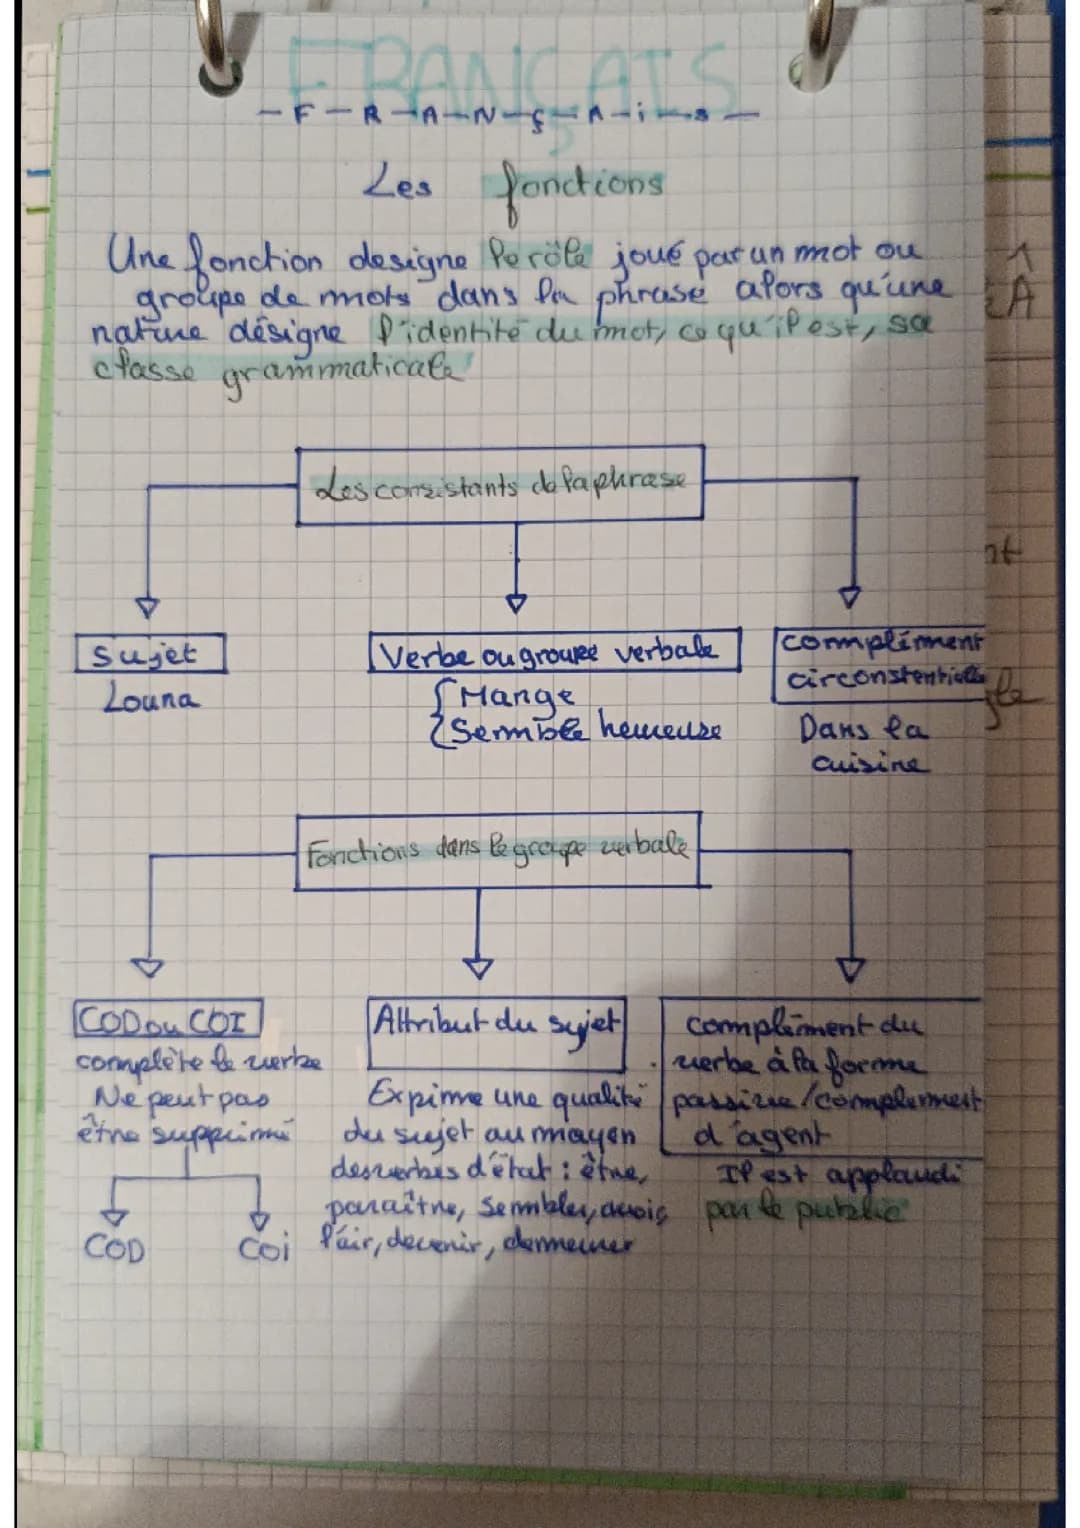 FRANÇAIS
-F-R-A-N-Ç-A-i-s-
Les fonctions
Une fonction designe le rôle joué par un mot ou
groupe de mots dans la phrase alors qu'une
nature désigne l'identité du mot, ce qu'il est, sa
classe grammaticale
Les consistants de la phrase
Sujet
Louna
Verbe ou groupe verbale
Mange
Semble heureuse
complément
circonstentielle
Dans la
cuisine
Fonctions dans le groupe verbale
COD ou COI
complète le verbe
Ne peut pas
être supprimé
COD
COi
Attribut du sujet
Expime une qualité
du sujet au moyen
des verbes d'état : être,
paraître, sembler, avoir
l'air, devenir, demeurer
complément du
verbe à la forme
passive/complement
d'agent
Il est applaudi
par le public